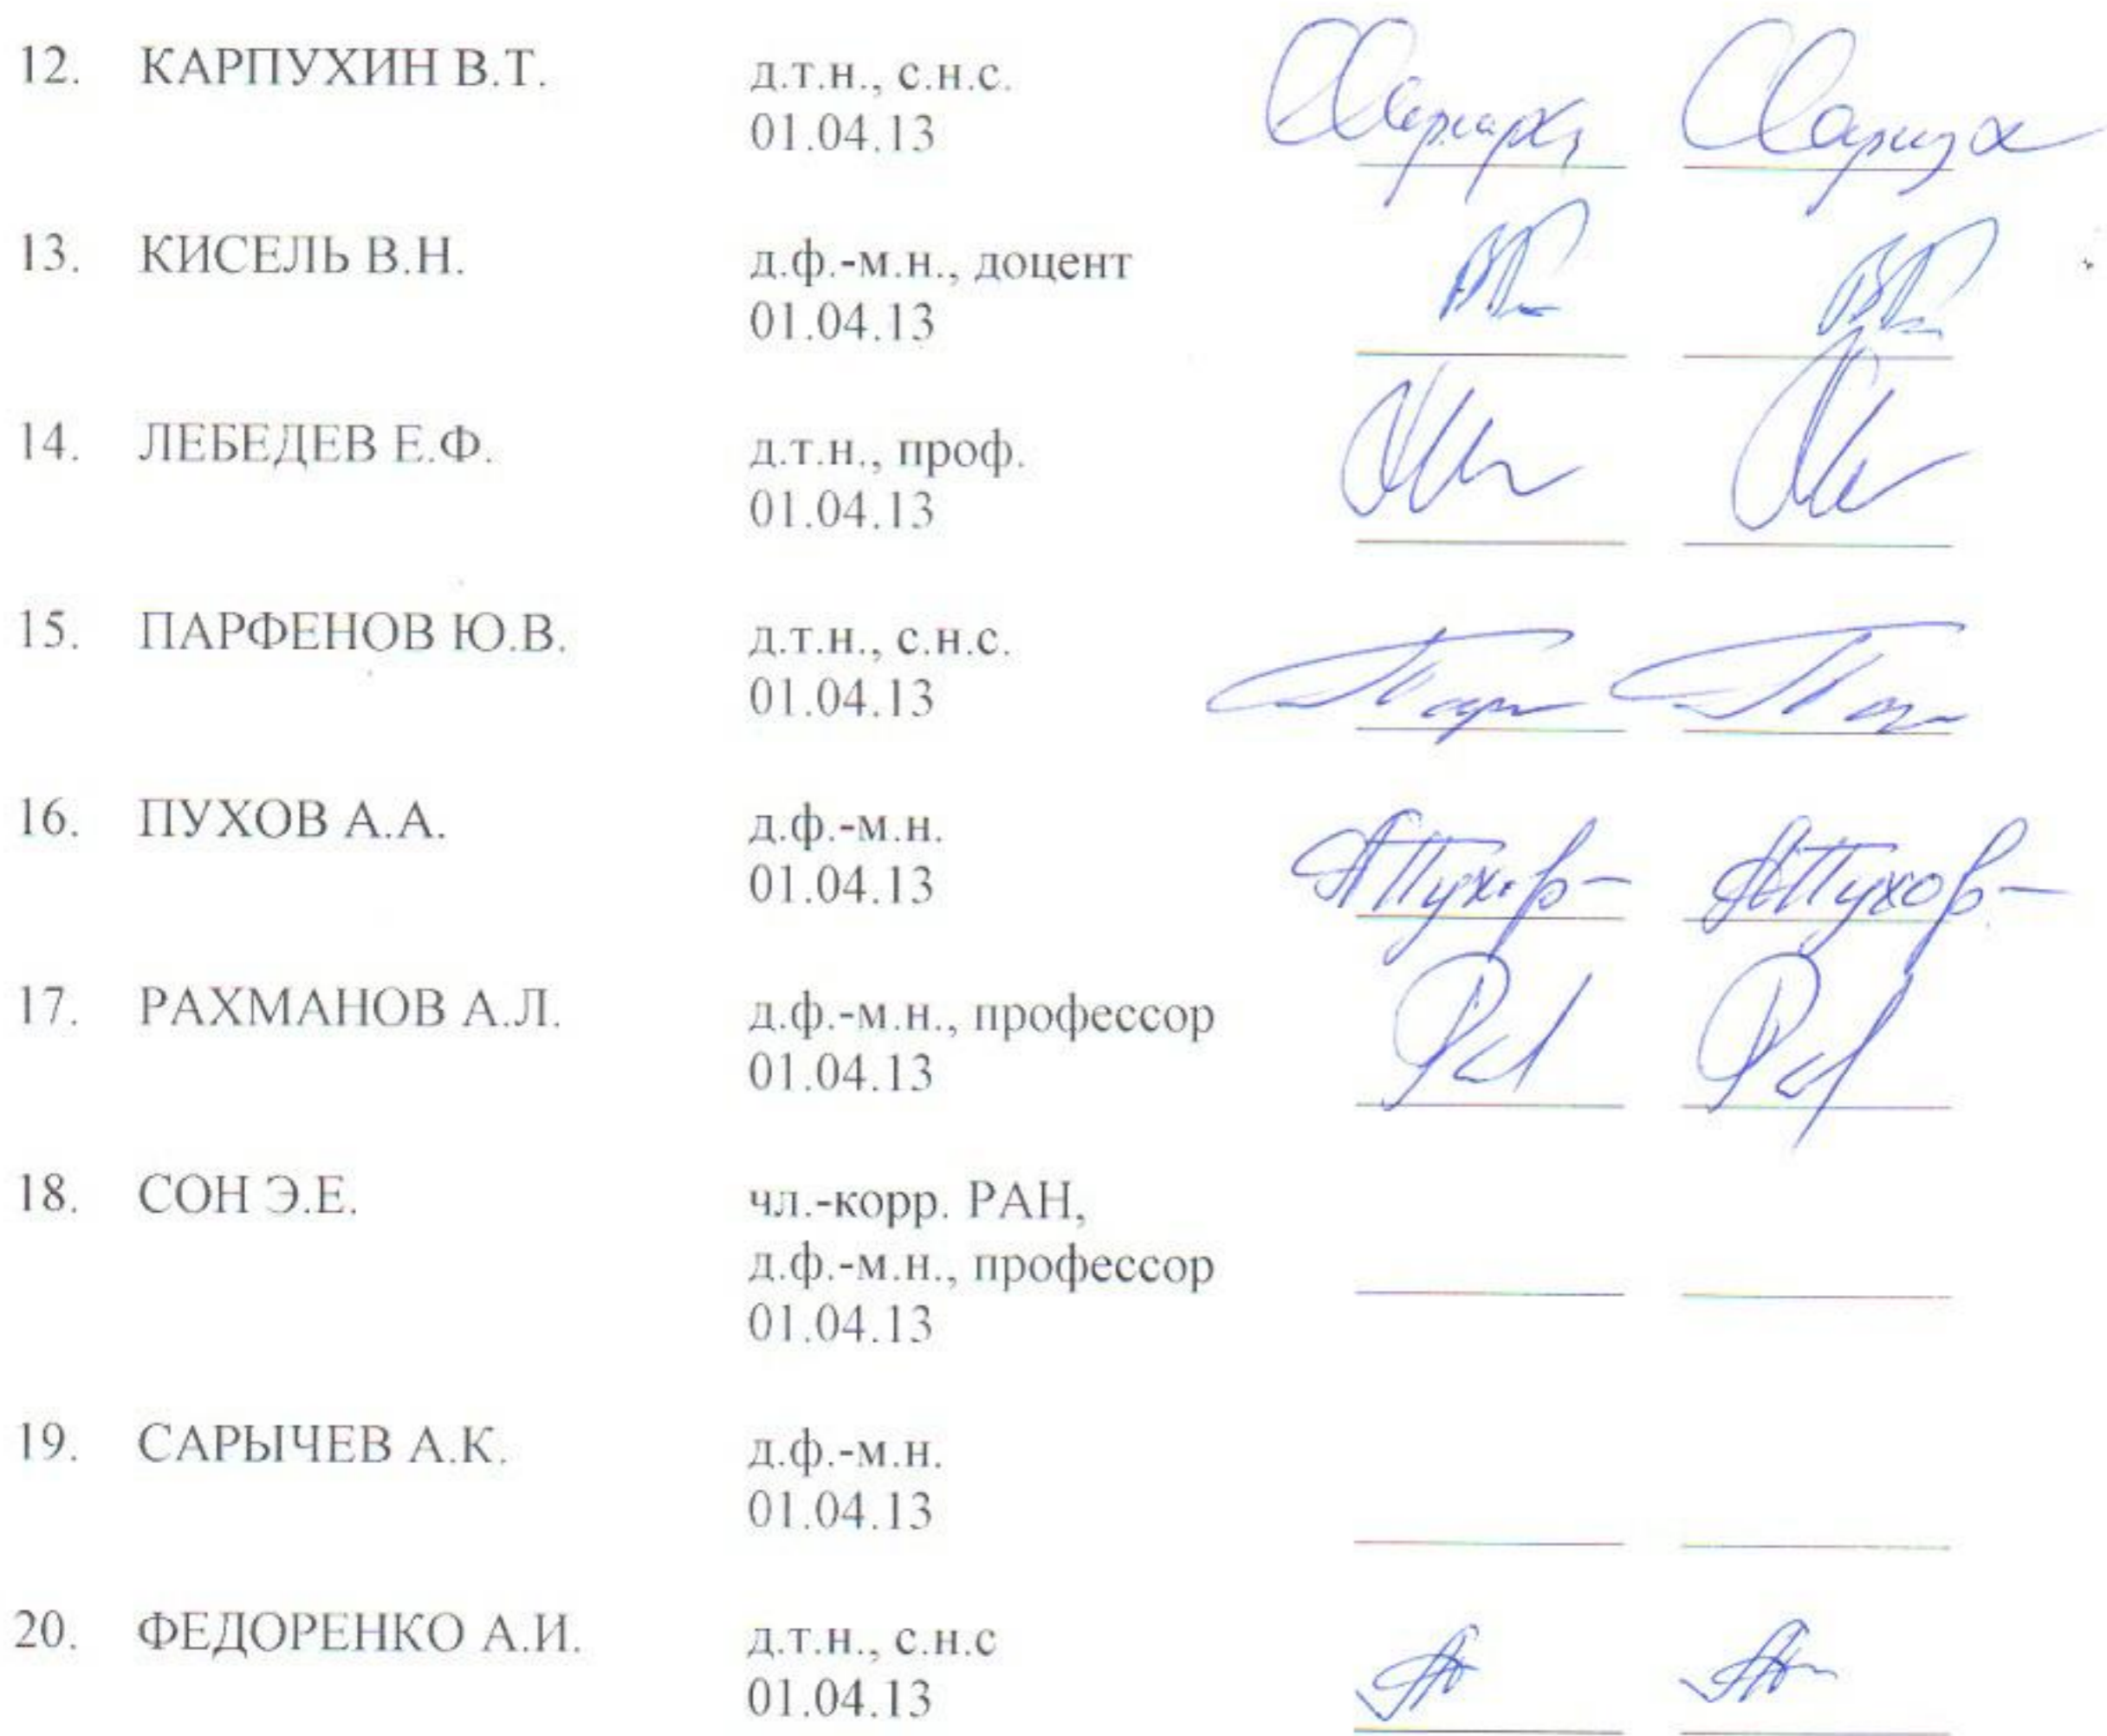 12. КАРПУХИН В.Т. д.т.н., с.н.с.
01.04.13
13. КИСЕЛЬ В.Н. д.ф.-м.н., доцент
01.04.13
14. ЛЕБЕДЕВ Е.Ф. д.т.н., проф.
01.04.13
15. ПАРФЕНОВ Ю.В. д.т.н., с.н.с.
01.04.13
16. ПУХОВ А.А. д.ф.-м.н. АПухов АПухов
01.04.13
17. РАХМАНОВ А.Л. д.ф.-м.н., профессор
01.04.13
18. СОН Э.Е. чл.-корр. РАН,
д.ф.-м.н., профессор
01.04.13
19. САРЫЧЕВ А.К. д.ф.-м.н.
01.04.13
20. ФЕДОРЕНКО А.И. д.т.н., с.н.с
01.04.13